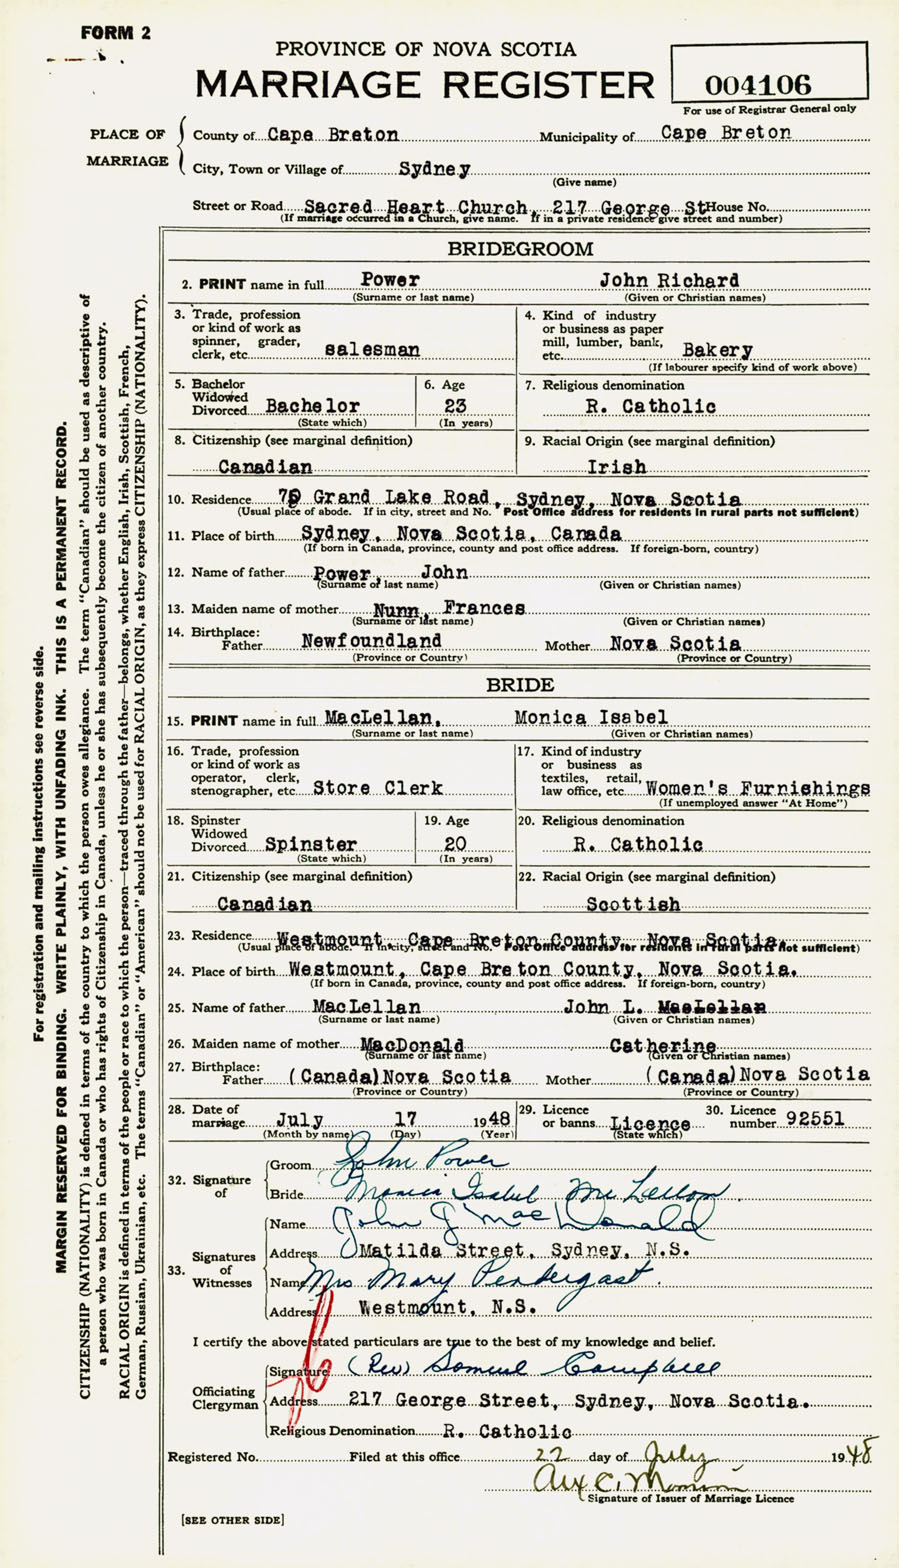 FORM 2
PROVINCE OF NOVA SCOTIA
MARRIAGE REGISTER
004106
For use of Registrar General only
PLACE OF MARRIAGE
County of Cape Breton Municipality of Cape Breton
City, Town or Village of Sydney
(Give name)
Street or Road Sacred Heart Church, 217 George St House No.
(If marriage occurred in a Church, give name. If in a private residence give street and number)
BRIDEGROOM
2. PRINT name in full Power John Richard
(Surname or last name) (Given or Christian names)
3. Trade, profession or kind of work as spinner, grader, clerk, etc. salesman
4. Kind of industry or business as paper mill, lumber, bank, etc. Bakery
(If labourer specify kind of work above)
5. Bachelor Widowed Divorced Bachelor
(State which)
6. Age 23
(In years)
7. Religious denomination
R. Catholic
8. Citizenship (see marginal definition)
Canadian
9. Racial Origin (see marginal definition)
Irish
10. Residence Grand Lake Road, Sydney, Nova Scotia
(Usual place of abode. If in city, street and No. Post Office address for residents in rural parts not sufficient)
11. Place of birth Sydney, Nova Scotia, Canada
(If born in Canada, province, county and post office address. If foreign-born, country)
12. Name of father Power, John
(Surname of last name) (Given or Christian names)
13. Maiden name of mother Nunn, Frances
(Surname or last name) (Given or Christian names)
14. Birthplace:
Father Newfoundland Mother Nova Scotia
(Province or Country) (Province or Country)
BRIDE
15. PRINT name in full MacLellan, Monica Isabel
(Surname or last name) (Given or Christian names)
16. Trade, profession or kind of work as operator, clerk, stenographer, etc. Store Clerk
17. Kind of industry or business as textiles, retail, law office, etc. Women's Furnishings
(If unemployed answer "At Home")
18. Spinster Widowed Divorced Spinster
(State which)
19. Age 20
(In years)
20. Religious denomination
R. Catholic
21. Citizenship (see marginal definition)
Canadian
22. Racial Origin (see marginal definition)
Scottish
23. Residence Westmount, Cape Breton County, Nova Scotia.
(Usual place of abode. If in city, street and No. Post Office address for residents in rural parts not sufficient)
24. Place of birth Westmount, Cape Breton County, Nova Scotia.
(If born in Canada, province, county and post office address. If foreign-born, country)
25. Name of father MacLellan John L. MacLellan
(Surname or last name) (Given or Christian names)
26. Maiden name of mother MacDonald Catherine
(Surname or last name) (Given or Christian names)
27. Birthplace:
Father (Canada) Nova Scotia Mother (Canada) Nova Scotia
(Province or Country) (Province or Country)
28. Date of marriage July 17 1948
(Month by name) (Day) (Year)
29. Licence or banns Licence
(State which)
30. Licence number 92551
32. Signature of
Groom John Power
Bride Monica Isabel McLellan
33. Signatures of Witnesses
Name John J MacDonald
Address Matilda Street, Sydney, N.S.
Name Mrs Mary Pendergast.
Address Westmount, N.S.
I certify the above stated particulars are true to the best of my knowledge and belief.
Officiating Clergyman
Signature (Rev) Samuel Campbell
Address 217 George Street, Sydney, Nova Scotia.
Religious Denomination R. Catholic
Registered No. Filed at this office 22 day of July 1948
Signature of Issuer of Marriage Licence
[SEE OTHER SIDE]
For registration and mailing instructions see reverse side.
MARGIN RESERVED FOR BINDING. WRITE PLAINLY, WITH UNFADING INK. THIS IS A PERMANENT RECORD.
CITIZENSHIP (NATIONALITY) is defined in terms of the country to which the person owes allegiance. The term "Canadian" should be used as descriptive of
a person who was born in Canada or who has rights of Citizenship in Canada, unless he or she has subsequently become the citizen of another country.
RACIAL ORIGIN is defined in terms of the people or race to which the person—traced through the father—belongs, whether English, Irish, Scottish, French,
German, Russian, Ukrainian, etc. The terms "Canadian" or "American" should not be used for RACIAL ORIGIN, as they express CITIZENSHIP (NATIONALITY).